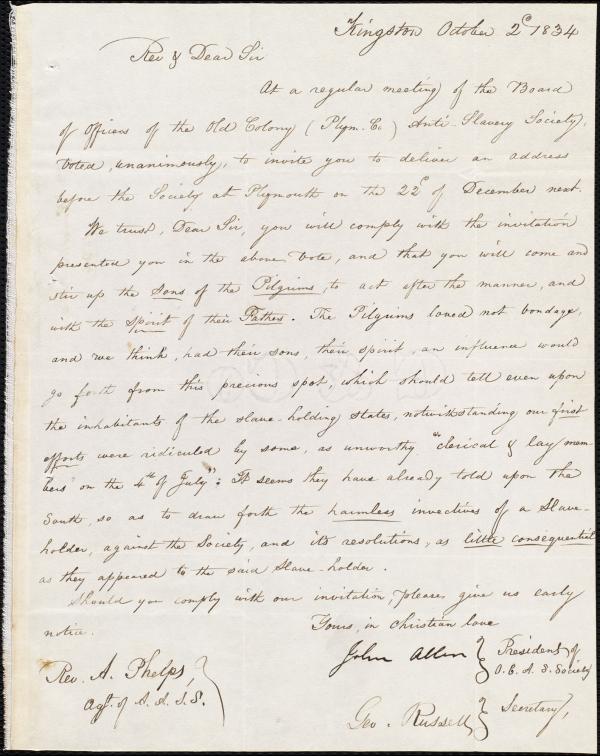 Kingston October 2d 1834
Rev & Dear Sir
At a regular meeting of the Board
of Officers of the Old Colony (Plym. Co.) Anti-Slavery Society,
Voted, unanimously, to invite you to deliver an address
before the Society at Plymouth on the 22d of December next.
We trust, Dear Sir, you will comply with the invitation
presented you in the above Vote, and that you will come and
stir up the Sons of the Pilgrims, to act after the manner, and
with the Spirit of their Fathers. The Pilgrims loved not bondage,
and we think, had their sons, their spirit, an influence would
go forth from this precious spot, which should tell even upon
the inhabitants of the slave-holding states, notwithstanding our first
efforts were ridiculed by some, as unworthy "clerical & lay mem-
bers" on the 4th of July": It seems they have already told upon the
South, so as to draw forth the harmless invectives of a Slave-
holder, against the Society, and its resolutions, as little consequential
as they appeared to the said Slave-holder.
Should you comply with our invitation, please give us early
notice.
Yours, in christian love
John Allen } President of
O. C. A. S. Society
Rev. A. Phelps,
Agt. of A. A. S. S. }
Geo. Russell, } Secretary,